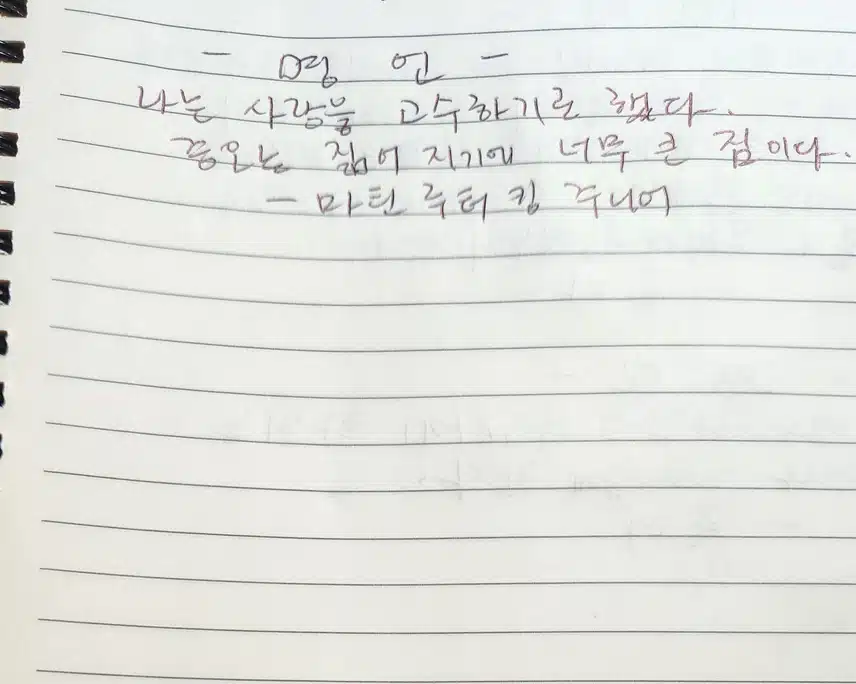 - 명 언 -
나는 사랑을 고수하기로 했다.
증오는 짊어 지기에 너무 큰 짐이다.
- 마틴 루터 킹 주니어